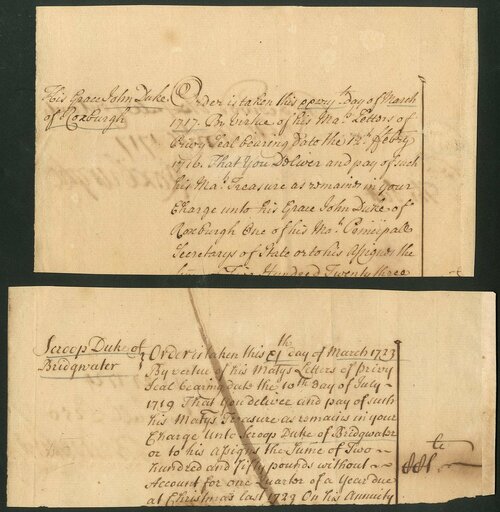 His Grace John Duke
of Roxburgh
Order is taken this xxvijth day of March
1717. By virtue of his Mats Letters of
Privy Seal bearing date the 12th ffebry
1716. That You Deliver and pay of such
his Mats Treasure as remains in your
Charge unto his Grace John Duke of
Roxburgh One of his Mats Principall
Secretarys of State or to his Assignes the
Hundred Twenty three
Scroop Duke of
Bridgwater
Order is taken this day of March 1723
By vertue of his Matys Letters of Privy
Seal bearing date the 10th Day of July
1719 That you deliver and pay of such
his Matys Treasure as remains in your
Charge unto Scroop Duke of Bridgwater
or to his assigns the Sume of Two
Hundred and fifty pounds without
Account for one Quarter of a Year due
at Christmas last 1723 On his Annuity